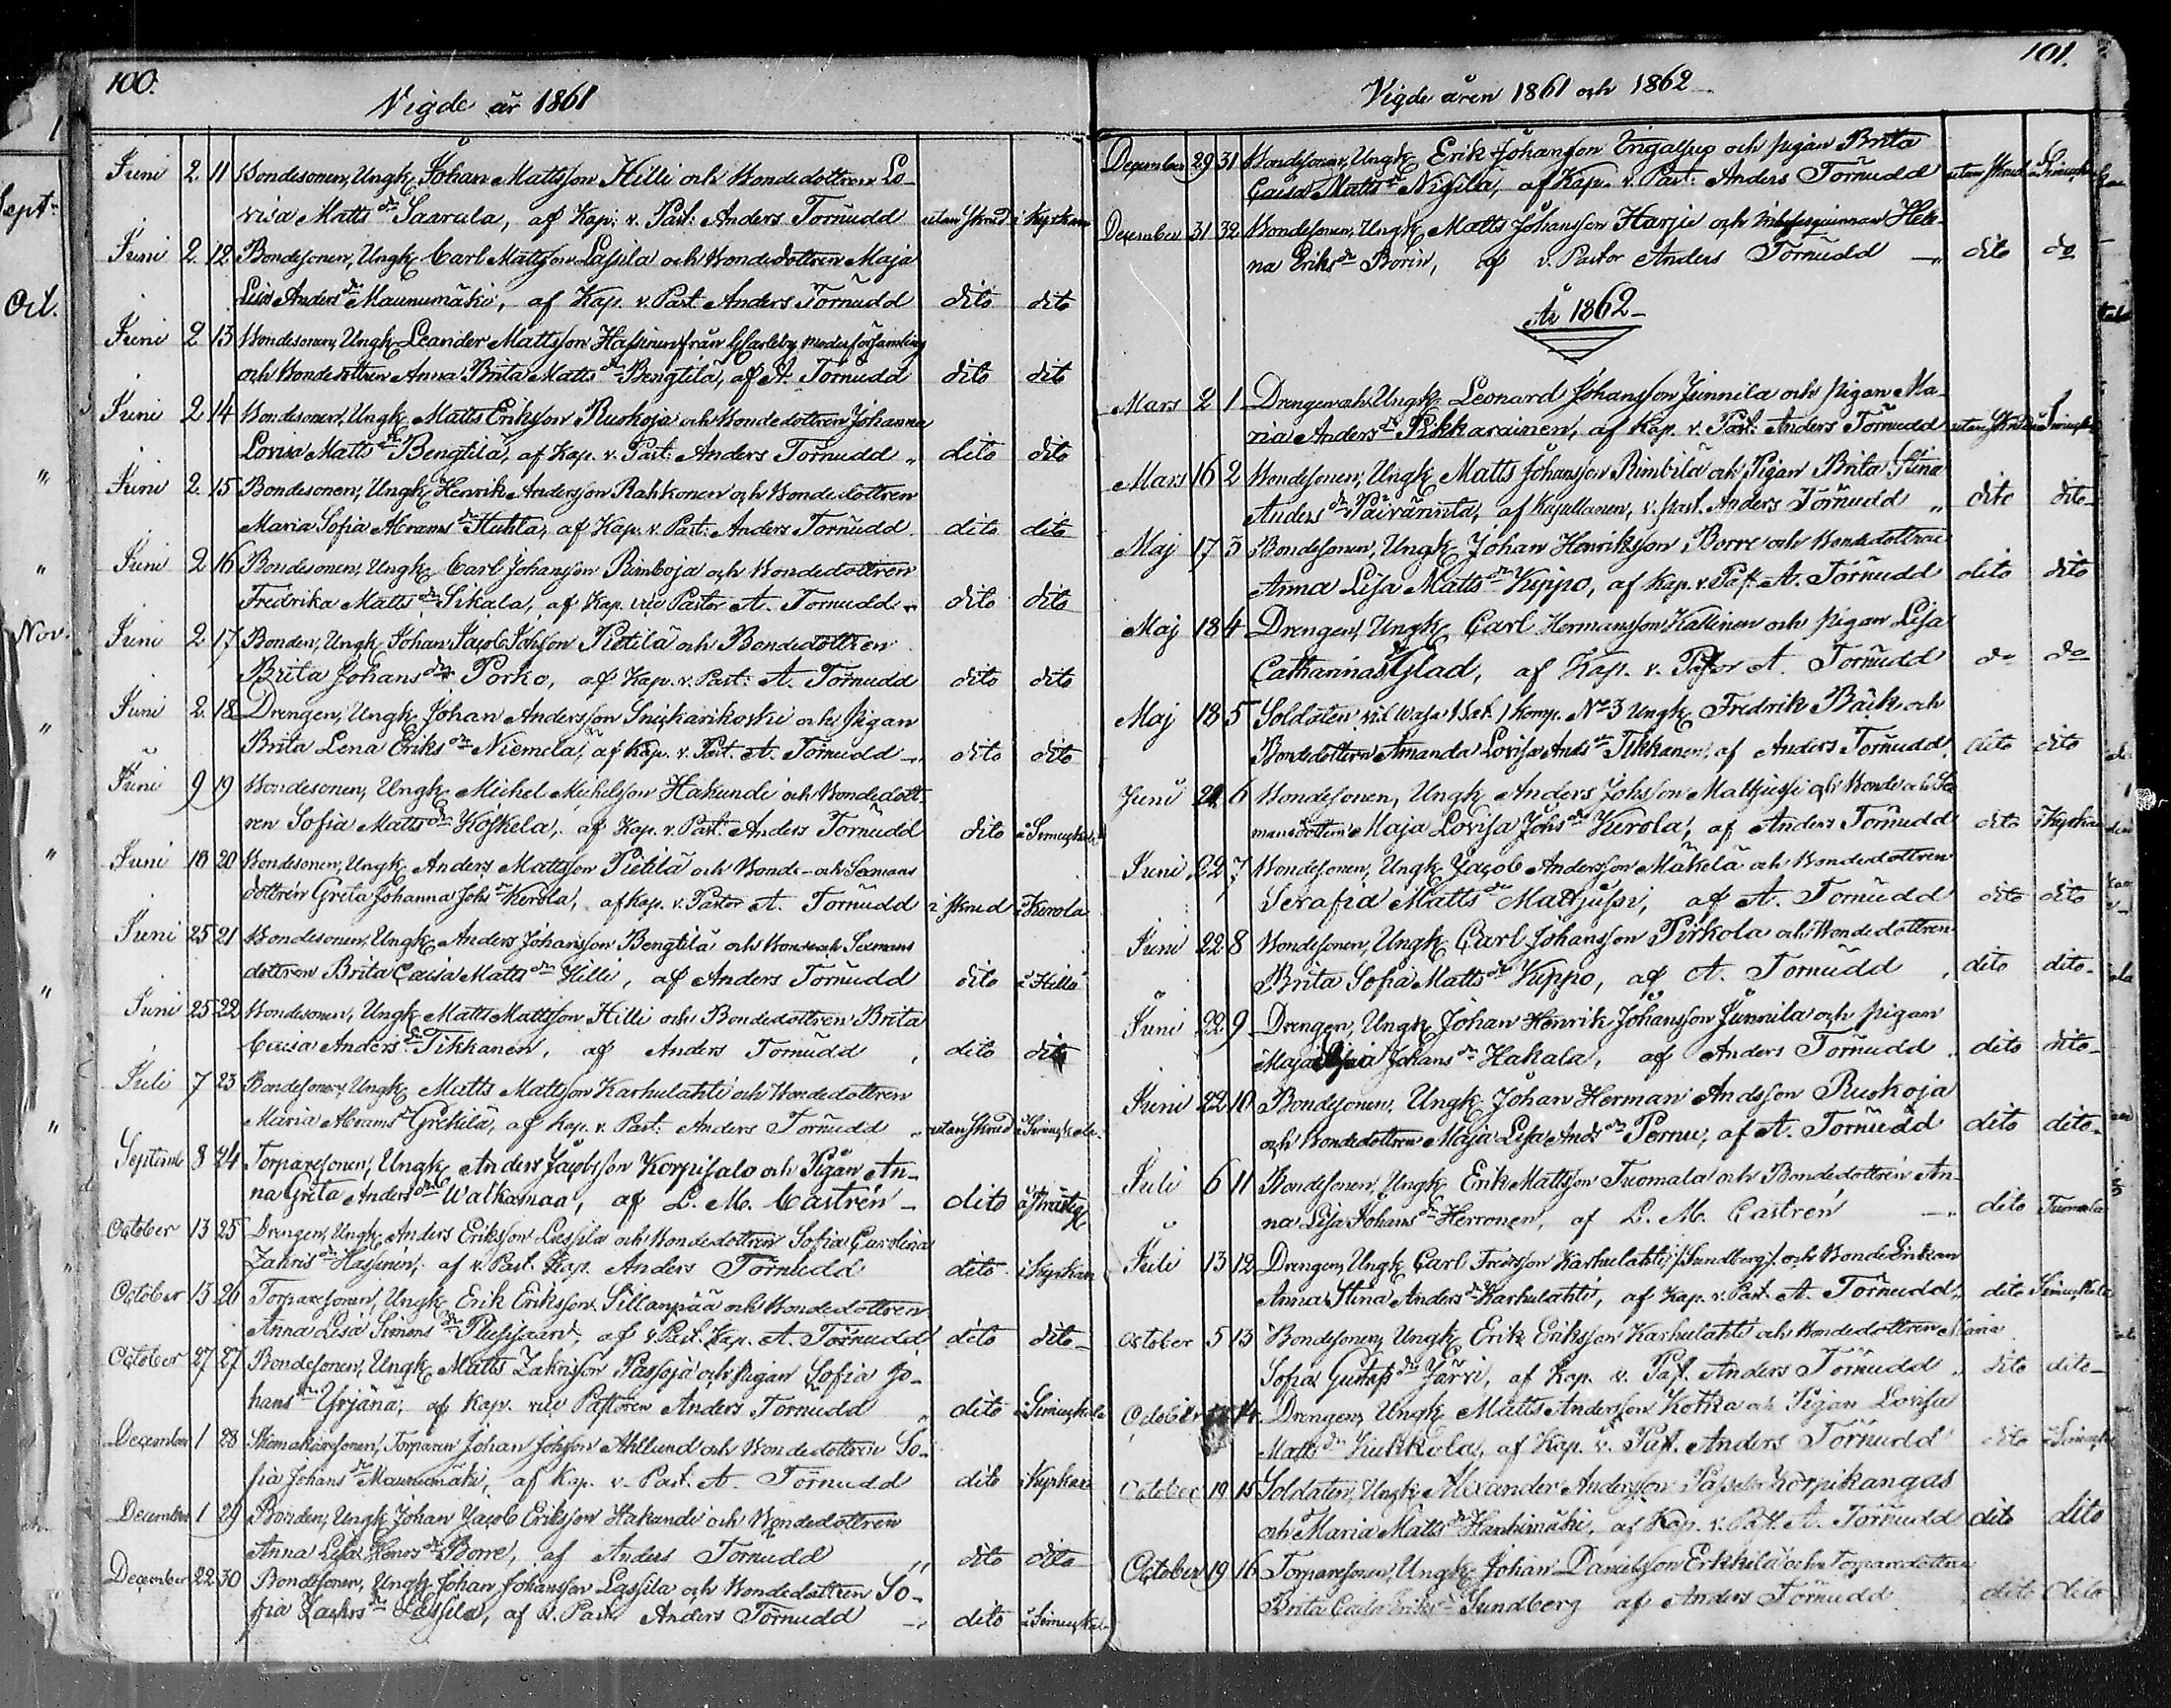 100.
Vigde år 1861
Juni 2. 11 Bondesonen, Ungk Johan Mattsson Hilli och Bondedottren Lo-
visa Matts dr Saarula, af Kap: v. Past: Anders Törnudd utan Skrud i Kyrkan
Juni 2. 12 Bondesonen, Ungk Carl Mattsson Lassila och Bondedottren Maja
Lisa Anders dr Maunumäki, af Kap. v. Past. Anders Törnudd dito dito
Juni 2 13 Bondesonen, Ungk Leander Mattsson Hassinen från GCarleby moderförsamling
och Bondedottren Anna Brita Matts dr Bengtilä, af A. Törnudd dito dito
Juni 2 14 Bondesonen, Ungk Matts Eriksson Ruskoja och Bondedottren Johanna
Lovisa Matts dr Bengtilä, af Kap. v. Past: Anders Törnudd „ dito dito
Juni 2. 15 Bondesonen, Ungk Henrik Andersson Rahkonen och Bondedottren
Maria Sofia Abrams dr Huhta, af Kap. v. Past: Anders Törnudd dito dito
Juni 2 16 Bondesonen, Ungk Carl Johansson Rimboja och Bondedottren
Fredrika Matts dr Sikala, af Kap. vice Pastor A. Törnudd „ dito dito
Juni 2. 17 Bonden, Ungk Johan Jacob Johsson Pietilä och Bondedottren
Brita Johans dr Porko, af Kap. v. Past: A. Törnudd dito dito
Juni 2. 18 Drengen, Ungk Johan Andersson och Pigan
Brita Lena Eriks dr Niemelä, af Kap. v. Past. A. Törnudd dito dito
Juni 9 19 Bondesonen, Ungk Michel Michelsson Hakundi och Bondedott-
ren Sofia Matts dr Koskela, af Kap. v. Past. Anders Törnudd dito
Juni 18 20 Bondesonen, Ungk Anders Mattsson Pietilä och Bonde- och Sexmans
dottren Greta Johanna Johs dr Kerola, af Kap. v. Pastor A. Törnudd i skrud i Kerola
Juni 25 21 Bondesonen, Ungk Anders Johansson Bengtilä och Bonde och Sexmans
dottren Brita Caisa Matts dr Hilli, af Anders Törnudd dito i Hilli
Juni 25 22 Bondesonen, Ungk Matts Mattsson Hilli och Bondedottren Brita
Caisa Anders dr Tikkanen, af Anders Törnudd dito dito
Juli 7 23 Bondesonen, Ungk Matts Mattsson Karhulahti och Bondedottren
Maria Abrams dr Grekilä, af Kap. v. Past: Anders Törnudd „ utan Skrud
Septemb 8 24 Torparesonen, Ungk Anders Jacobsson Korpisalo och Pigan An-
na Greta Anders dr Walkamaa, af L. M. Castrén dito
October 13 25 Drengen, Ungk Anders Eriksson Lassila och Bondedottren Sofia Carolina
Zakris dr Hassinen, af v. Past. Kap. Anders Törnudd dito i Kyrkan
October 13 26 Torparesonen, Ungk Erik Eriksson Sillanpää och Bondedottren
Anna Lisa Simons dr af v. Past. Kap. A. Törnudd dito dito
October 27 27 Bondesonen, Ungk Matts Zakrisson Passoja och pigan Sofia Jo-
hans dr Yrjänä, af Kap. vice Pastoren Anders Törnudd „ dito
December 1 28 Skomakaresonen, Torparen Johan Johsson Ahllund och Bondedottren So-
fia Johans dr Maunumäki, af Kap. v. Past. A. Törnudd dito i Kyrkan
December 1 29 Bonden, Ungk Johan Jacob Eriksson Hakundi och Bondedottren
Anna Lisa Henrs dr Borre, af Anders Törnudd „ dito dito
December 22 30 Bondesonen, Ungk Johan Johansson Lassila och Bondedottren So-
fia Zachrs dr Lassila, af v. Past. Anders Törnudd dito
101.
Vigde åren 1861 och 1862
December 29 31 Bondesonen, Ungk Erik Johansson och pigan Brita
Caisa Matts dr Nigilä, af Kap. v. Past: Anders Törnudd utan Skrud
December 31 32 Bondesonen, Ungk Matts Johansson Harju och Inhysesqvinnan Hele-
na Eriks dr Borin, af v. Pastor Anders Törnudd dito do
År 1862
Mars 2 1 Drengen och Ungk Leonard Johansson Junnila och pigan Ma-
ria Anders dr Pikkarainen, af Kap. v. Past. Anders Törnudd utan Skrud
Mars 16 2 Bondesonen, Ungk Matts Johansson Rimbilä och Pigan Brita Stina
Anders dr Päivärinta, af Kapellanen, v. past. Anders Törnudd „ dito dito
Maj 17 3 Bondesonen, Ungk Johan Henriksson Borre och Bondedottren
Anna Lisa Matts dr Kippo, af Kap. v. Past. A. Törnudd dito dito
Maj 18 4 Drengen, Ungk Carl Hermansson Kallinen och pigan Lisa
Catharina Glad, af Kap. v. Pastor A. Törnudd do do
Maj 18 5 Soldaten vid Wasa Bat. 1 Komp. No 3 Ungk Fredrik Bäck och
Bondedottren Amanda Lovisa Ands dr Tikkanen, af Anders Törnudd dito dito
Juni 21 6 Bondesonen, Ungk Anders Johsson Mattjussi och Bonde och Sex-
mansdottren Maja Lovisa Johs dr Kerola, af Anders Törnudd dito i Kyrkan
Juni 22 7 Bondesonen, Ungk Jacob Andersson Mäkelä och Bondedottren
Serafia Matts dr Mattjussi, af A. Törnudd dito dito
Juni 22 8 Bondesonen, Ungk Carl Johansson Pirkola och Bondedottren
Brita Sofia Matts dr Kippo, af A. Törnudd dito dito
Juni 22 9 Drengen, Ungk Johan Henrik Johansson Junnila och pigan
Maja Johans dr Hakala, af Anders Törnudd dito dito
Juni 22 10 Bondesonen, Ungk Johan Herman Andsson Ruskoja
och Bondedottren Maja Lisa Ands dr Pernu, af A. Törnudd dito dito
Juli 6 11 Bondesonen, Ungk Erik Mattsson Tuomala och Bondedottren An-
na Lisa Johans dr Herronen, af L. M. Castrén dito Tuomala
Juli 13 12 Drengen, Ungk Carl Fredrsson Karhulahti /:Sundberg:/ och Bonde Enkan
Anna Stina Anders dr Karhulahti, af Kap. v. Past. A. Törnudd „ dito
October 5 13 Bondesonen, Ungk Erik Eriksson Karhulahti och Bondedottren Maria
Sofia Gustafs dr Järvi, af Kap. v. Past. Anders Törnudd „ dito dito
October 14 Drengen, Ungk Matts Andersson Kotka och Pigan Lovisa
Matts dr Kukkola, af Kap. v. Past. Anders Törnudd dito
October 19 15 Soldaten, Ungk Alexander Andersson Korpikangas
och Maria Matts dr Hankimäki, af Kap. v. Past. A. Törnudd dito dito
October 19 16 Torparesonen, Ungk Johan Danielsson Erkkilä och Torparedottren
Brita Caisa Eriks dr Sundberg af Anders Törnudd dito dito
Sept:
Oct.
Nov.